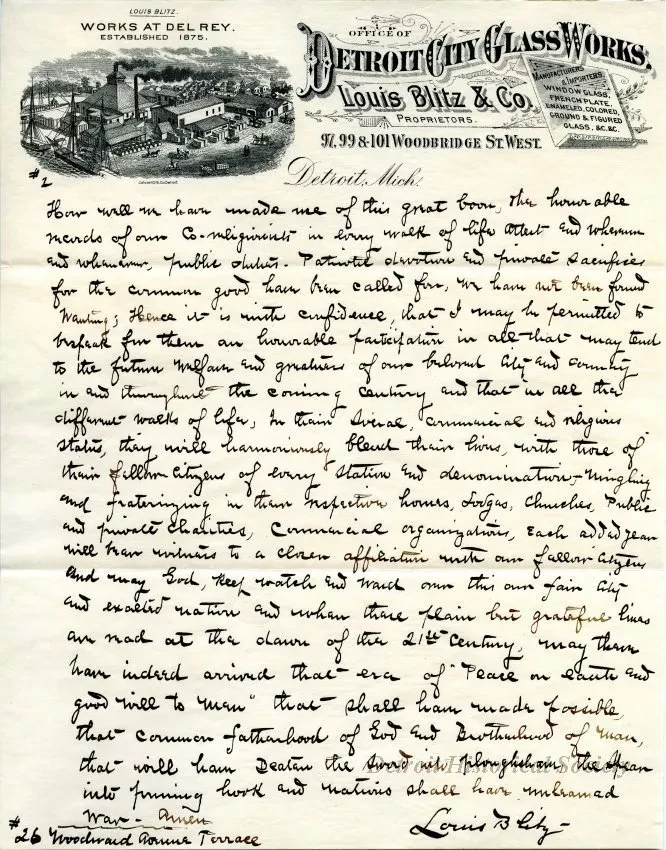 LOUIS BLITZ.
WORKS AT DEL REY.
ESTABLISHED 1875.
OFFICE OF
DETROIT CITY GLASS WORKS.
Louis Blitz & Co.
PROPRIETORS.
97, 99 & 101 WOODBRIDGE ST. WEST.
MANUFACTURERS
& IMPORTERS
WINDOW GLASS,
FRENCH PLATE,
ENAMELED, COLORED
GROUND & FIGURED
GLASS, &C. &C.
Detroit, Mich.
#2
How well we have made use of this great boon, the honorable
records of our Co-religionists in every walk of life attest and wherever
and whenever, public duties - Patriotic devotion and private sacrifices
for the common good have been called for, we have not been found
Wanting; Hence it is with confidence, that I may be permitted to
bespeak for them an honorable participation in all that may tend
to the future welfare and greatness of our beloved City and country
in and throughout the coming century and that in all the
different walks of life, In their Social, commercial and religious
status, they will harmoniously blend their lives, with those of
their fellow Citizens of every station and denomination - Mingling
and fraternizing in their respective homes, Lodges, Churches, Public
and private Charities, Commercial organizations, Each added year
will bear witness to a closer affiliation with our fellow Citizens
And may God, keep watch and ward over this our fair City
and exalted nation and when these plain but grateful lines
are read at the dawn of the 21st Century, may there
have indeed arrived that era of "Peace on earth and
good will to Men" that shall have made possible,
that common fatherhood of God and Brotherhood of Man,
that will have Beaten the sword into ploughshare the Spear
into pruning hook and nations shall have unlearned
War - Amen
Louis Blitz -
#26 Woodward Avenue Terrace
Detroit Historical Society